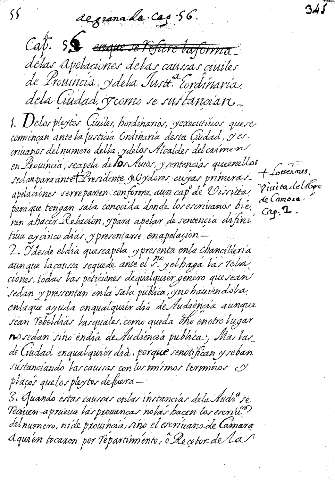 55
de granada Cap. 56.
345
Cap. 56 en que se refiere la forma
de las Apelaciones de las causas ciuiles
de Prouincia, y de la Justª. hordinaria
de la Ciudad, y como se sustancian.
1. De los pleytos Ciuiles, hordinarios, y executiuos que se
comiençan ante la Justicia Ordinaria desta Ciudad, y es-
criuanos del numero della, y de los Alcaldes del crimen
en Prouincia, se apela de los Autos, y sentencias que en ellos
se dan para ante Presidente y Oydores cuyas primeras
apelaciones se reparten conforme, a un cap. de Vissita
para que tengan sala conocida donde los escriuanos
a hacer Relacion, y para apelar de sentencia difini
tiua ay cinco dias, y presentarse en apelacion.
+ Lo
Visita del
de Camora
Cap. 2
2. I desde el dia que se apela, y presenta en la Chancilleria
aunque la causa se quede, ante el y el haga las Rela
ciones, todas las peticiones de qualquier genero que sean
se dan y presentan en la sala publica, y no hauiendola,
en la que ay uda en qualquier dia de Audiencia, aunque
sean Rebeldias las quales, como queda dho en otro lugar
no se dan sino en dia de Audiencia publica; Mas las
de Ciudad en qualquier dia, porque se notifican y se dan
sustanciando las causas con los mismos terminos y
plaços que los pleytos de fuera.
3. Quando estas causas en las instancias de la Audª. se
reciuen a prueua las prouanças no las hacen los escriuos.
del numero, ni de prouincia, sino el escriuano de Camara
a quien tocaron por repartimiento, o Recetor de las